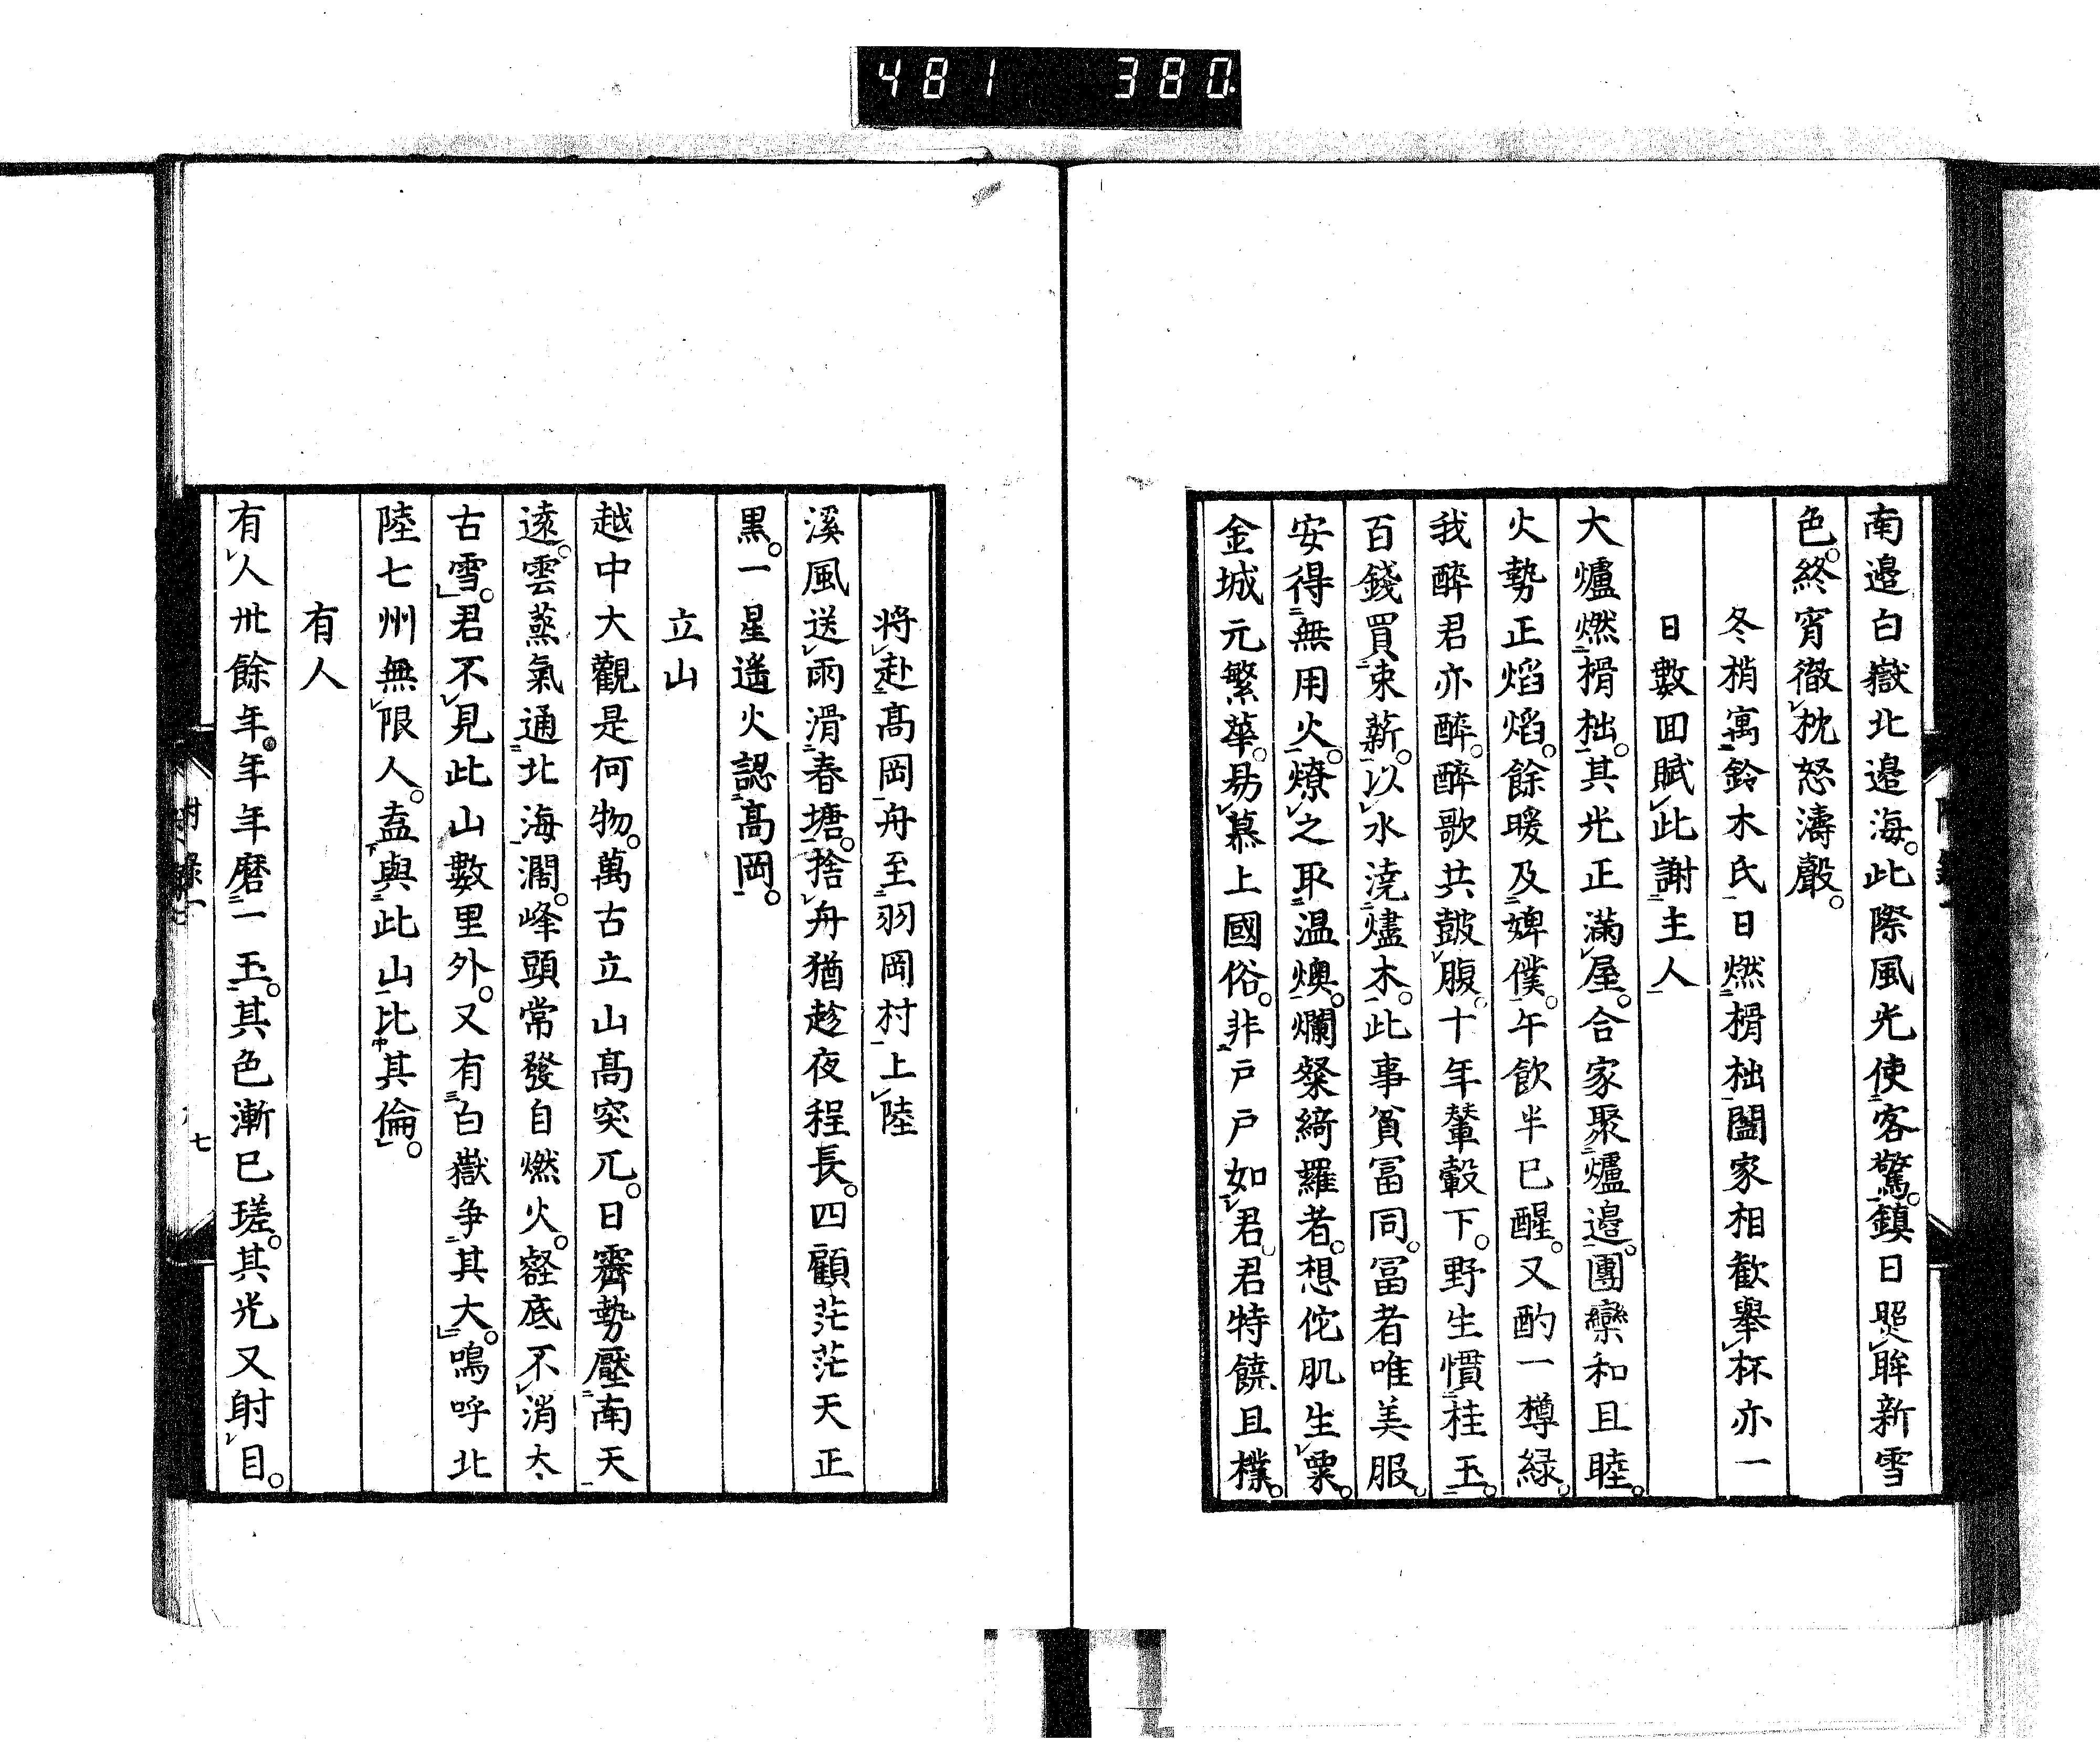 481 380
南邉白嶽北邉海。此際風光使客驚。鎮日照眸新雪
色。終宵徹枕怒濤聲。
冬梢寓鈴木氏日燃榾柮闔家相歓舉杯亦一
日數回賦此謝主人
大爐燃榾柮。其光正滿屋。合家聚爐邉。團欒和且睦。
火勢正焰焰。餘暖及婢僕。午飲半已醒。又酌一樽緑。
我醉君亦醉。醉歌共鼓腹。十年輦轂下。野生慣桂玉。
百錢買束薪。以水澆燼木。此事貧冨同。冨者唯美服。
安得無用火。燎之取温燠。爛粲綺羅者。想佗肌生粟。
金城元繁華。易慕上國俗。非戸戸如君。君特饒且樸。
将赴高岡舟至羽岡村上陸
溪風送雨滑春塘。捨舟猶趁夜程長。四顧茫茫天正
黒。一星遥火認高岡。
立山
越中大觀是何物。萬古立山高突兀。日霽勢壓南天
遠。雲蒸氣通北海濶。峰頭常發自燃火。壑底不消太
古雪。君不見此山數里外。又有白嶽争其大。嗚呼北
陸七州無限人。盍與此山比其倫。
有人
有人卅餘年。年年磨一玉。其色漸已瑳。其光又射目。
附錄一
七